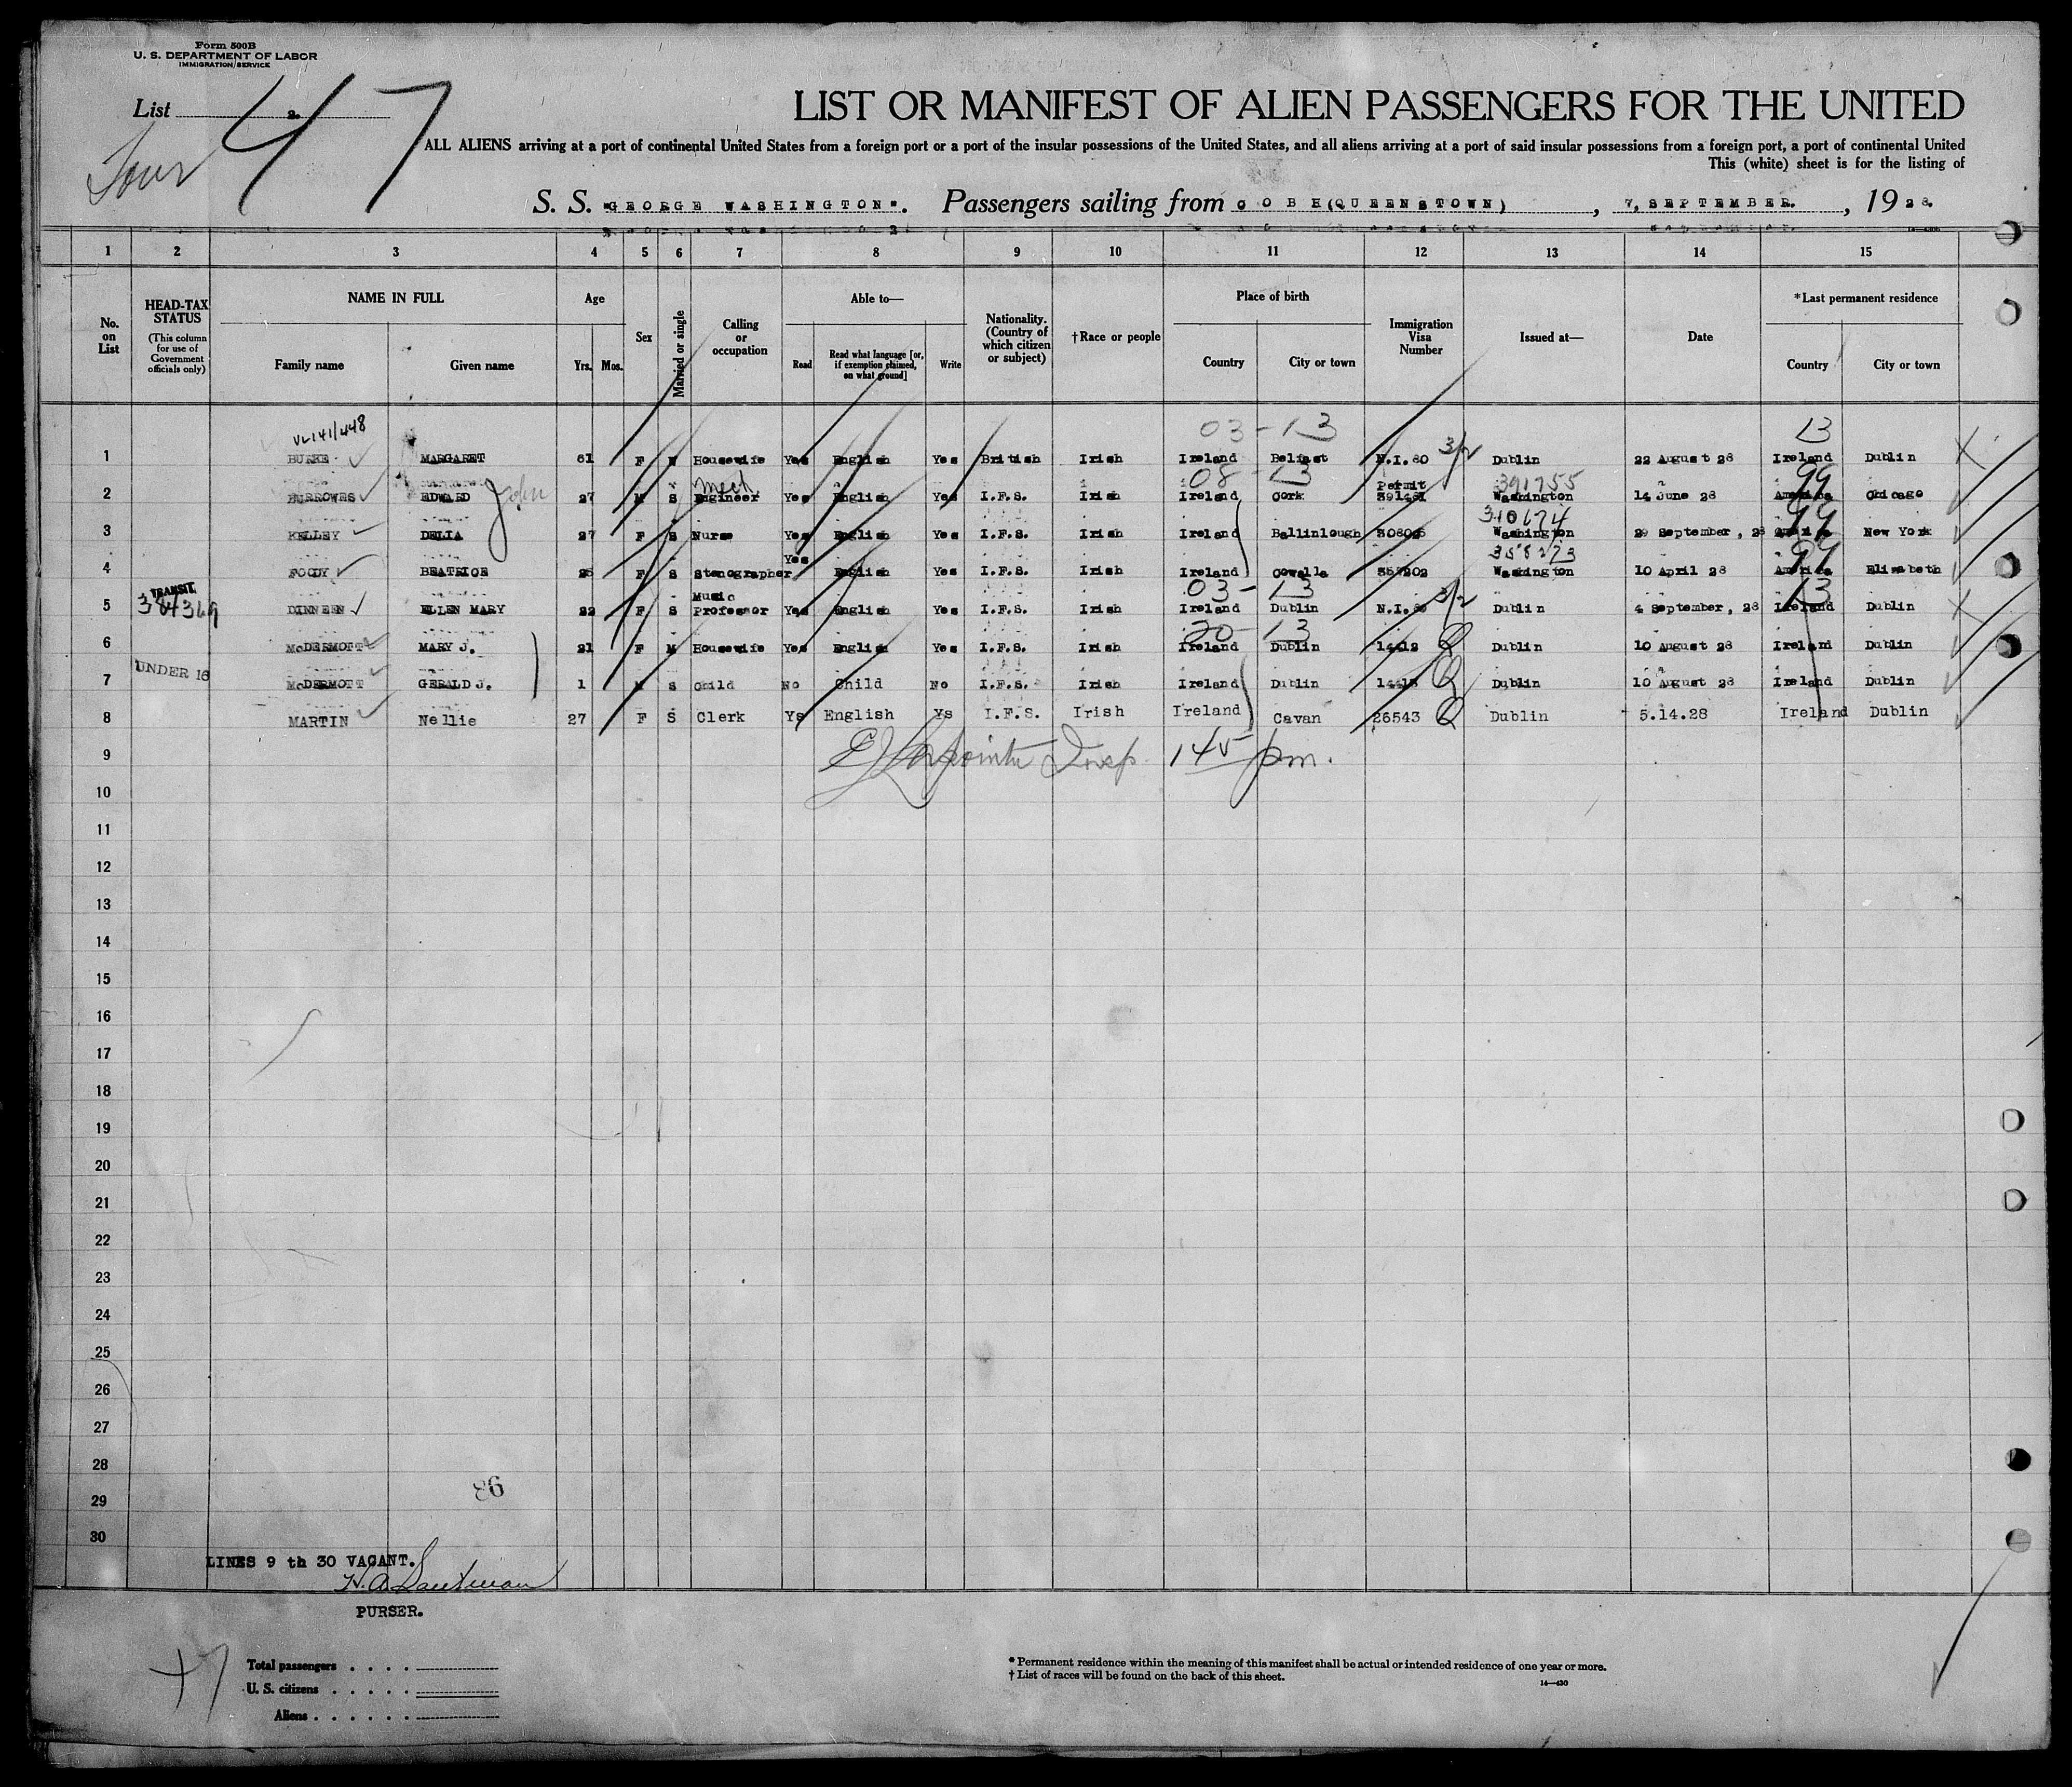 Form 500B
U. S. DEPARTMENT OF LABOR
IMMIGRATION SERVICE
List 2.
47
LIST OR MANIFEST OF ALIEN PASSENGERS FOR THE UNITED
ALL ALIENS arriving at a port of continental United States from a foreign port or a port of the insular possessions of the United States, and all aliens arriving at a port of said insular possessions from a foreign port, a port of continental United
This (white) sheet is for the listing of
S. S. "GEORGE WASHINGTON". Passengers sailing from COBH (QUEENSTOWN), 7, SEPTEMBER. , 1928.
1 2 3 4 5 6 7 8 9 10 11 12 13 14 15
No. on List
HEAD-TAX STATUS (This column for use of Government officials only)
NAME IN FULL Family name Given name
Age Yrs. Mos.
Sex
Married or single
Calling or occupation
Able to— Read Read what language [or, if exemption claimed, on what ground] Write
Nationality. (Country of which citizen or subject)
†Race or people
Place of birth Country City or town
Immigration Visa Number
Issued at—
Date
*Last permanent residence Country City or town
03-13 13
1 BURKE MARGARET 61 F Housewife Yes English Yes British Irish Ireland Belfast N.I.80 3/2 Dublin 22 August 28 Ireland Dublin
John Mech 08-13 Permit 391755 99
2 BURROWES EDWARD 27 M S Engineer Yes English Yes I.F.S. Irish Ireland Cork Washington 14 June 28 America Chicago
310174 99
3 KELLEY DELIA 27 F S Nurse Yes English Yes I.F.S. Irish Ireland Ballinlough Washington 29 September, 28 New York
358273 99
4 FOODY BEATRICE F S Stenographer Yes English Yes I.F.S. Irish Ireland Washington 10 April 28 America Elizabeth
TRANSIT. 03-13 13
5 DINNEEN ELLEN MARY 22 F S Music Professor Yes English Yes I.F.S. Irish Ireland Dublin N.I. 3/2 Dublin 4 September, 28 Ireland Dublin
20-13
6 McDERMOTT MARY J. 21 F M Housewife Yes English Yes I.F.S. Irish Ireland Dublin 14412 Q Dublin 10 August 28 Ireland Dublin
UNDER 16
7 McDERMOTT GERALD J. 1 M S Child No Child No I.F.S. Irish Ireland Dublin 14413 Q Dublin 10 August 28 Ireland Dublin
8 MARTIN Nellie 27 F S Clerk Ys English Ys I.F.S. Irish Ireland Cavan 26543 Q Dublin 5.14.28 Ireland Dublin
9 Insp. 145 pm.
10
11
12
13
14
15
16
17
18
19
20
21
22
23
24
25
26
27
28
29
86
30
LINES 9 th 30 VACANT.
PURSER.
Total passengers
U. S. citizens
Aliens
* Permanent residence within the meaning of this manifest shall be actual or intended residence of one year or more.
† List of races will be found on the back of this sheet.
14—430